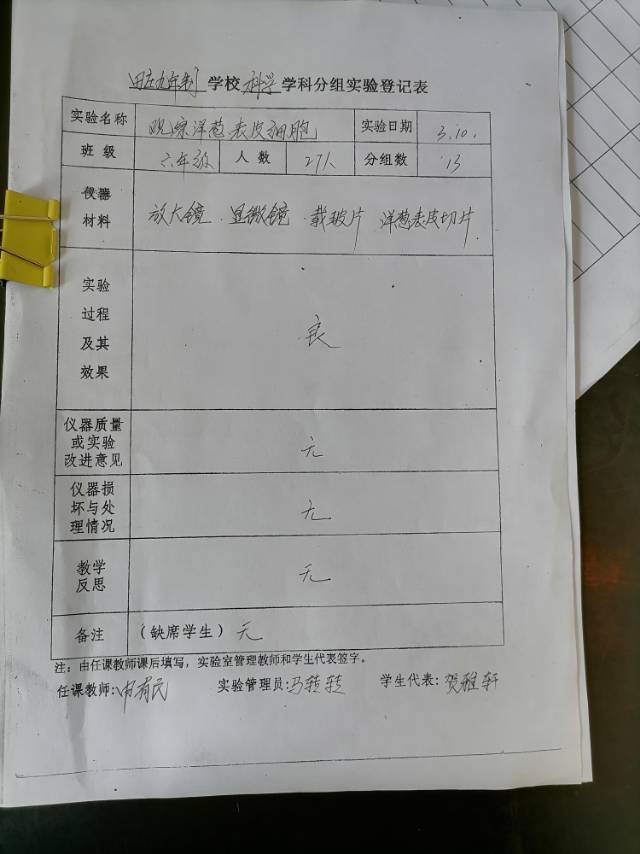 田庄九年制 学校 科学 学科分组实验登记表
实验名称 观察洋葱表皮细胞 实验日期 3.10.
班 级 六年级 人 数 27人 分组数 13
仪器材料 放大镜 . 显微镜 . 载玻片 洋葱表皮切片.
实验过程及其效果 良
仪器质量或实验改进意见 无
仪器损坏与处理情况 无
教学反思 无
备注 (缺席学生) 无
注：由任课教师课后填写，实验室管理教师和学生代表签字。
任课教师: 有民 实验管理员: 马转转 学生代表: 贺雅轩